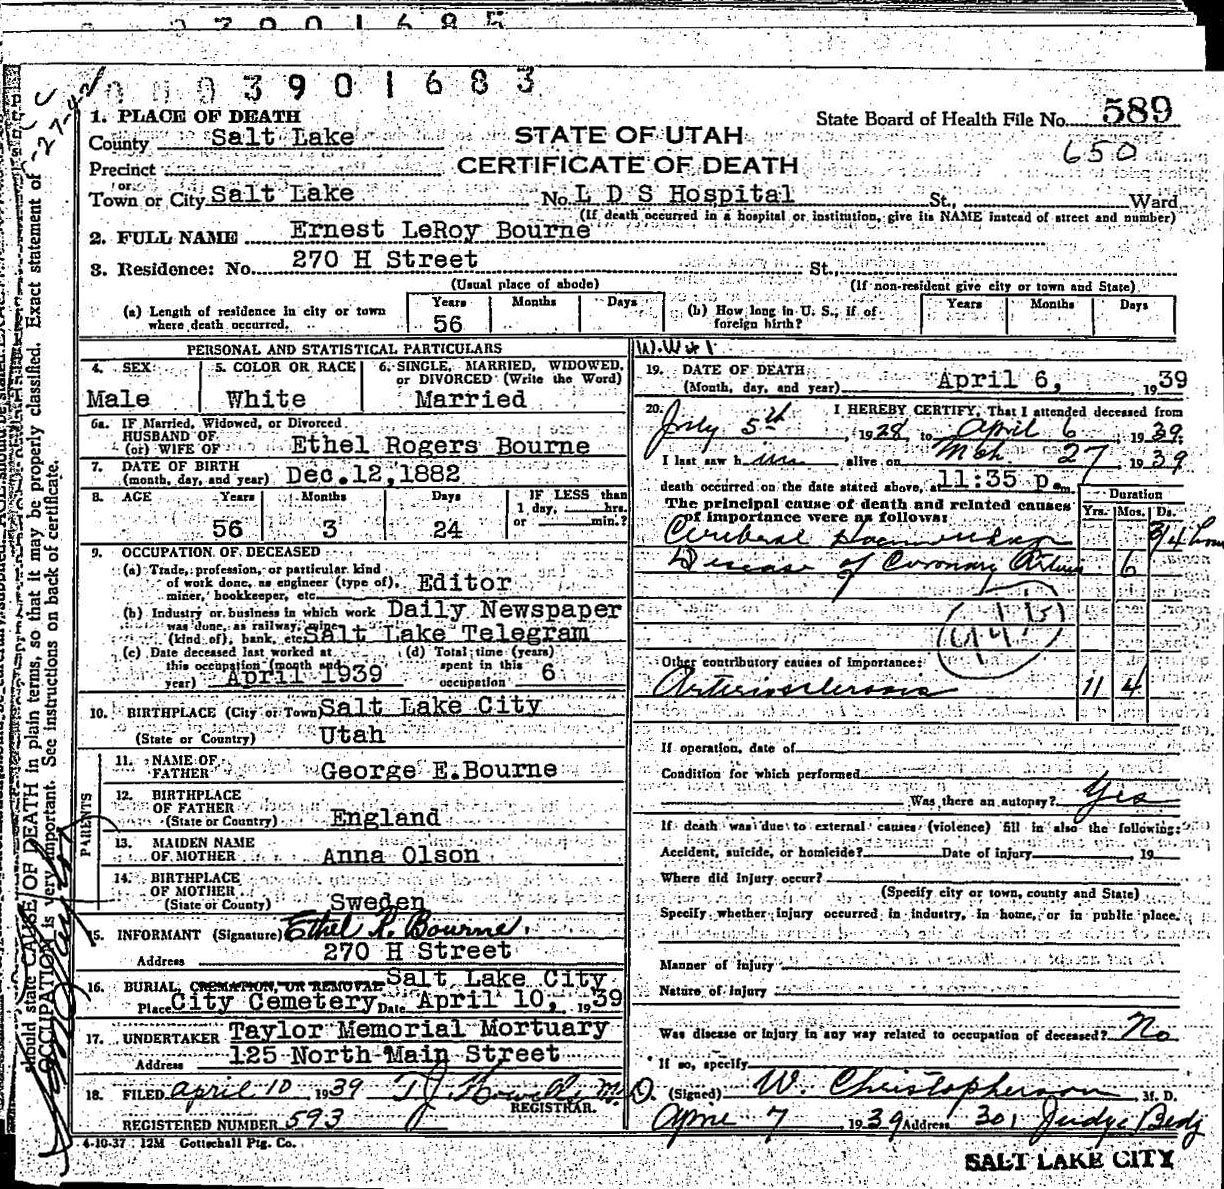 0003901683
1. PLACE OF DEATH
State Board of Health File No. 589
County Salt Lake
STATE OF UTAH
650
Precinct
CERTIFICATE OF DEATH
or
Town or City Salt Lake No. L D S Hospital St., Ward
(If death occurred in a hospital or institution, give its NAME instead of street and number)
2. FULL NAME Ernest LeRoy Bourne
3. Residence: No. 270 H Street St.,
(Usual place of abode) (If non-resident give city or town and State)
(a) Length of residence in city or town where death occurred. Years 56 Months Days (b) How long in U. S., if of foreign birth? Years Months Days
PERSONAL AND STATISTICAL PARTICULARS
4. SEX 5. COLOR OR RACE 6. SINGLE, MARRIED, WIDOWED, or DIVORCED (Write the Word)
Male White Married
6a. IF Married, Widowed, or Divorced
HUSBAND OF
(or) WIFE OF Ethel Rogers Bourne
7. DATE OF BIRTH
(month, day, and year) Dec. 12, 1882
8. AGE Years Months Days IF LESS than
1 day, hrs.
56 3 24 or min.?
9. OCCUPATION OF DECEASED
(a) Trade, profession, or particular kind
of work done, as engineer (type of),
miner, bookkeeper, etc. Editor
(b) Industry or business in which work Daily Newspaper
was done, as railway, mine
(kind of), bank, etc. Salt Lake Telegram
(c) Date deceased last worked at
this occupation (month and
year) April 1939
(d) Total time (years)
spent in this
occupation 6
10. BIRTHPLACE (City or Town) Salt Lake City
(State or Country) Utah
PARENTS
11. NAME OF
FATHER George E. Bourne
12. BIRTHPLACE
OF FATHER
(State or Country) England
13. MAIDEN NAME
OF MOTHER Anna Olson
14. BIRTHPLACE
OF MOTHER
(State or Country) Sweden
15. INFORMANT (Signature) Ethel R. Bourne
Address 270 H Street
16. BURIAL, CREMATION, OR REMOVAL Salt Lake City
Place City Cemetery Date April 10, 1939
17. UNDERTAKER Taylor Memorial Mortuary
Address 125 North Main Street
18. FILED April 10 1939 T J Howells M.D.
REGISTRAR.
REGISTERED NUMBER 593
4-10-37 12M Gottschall Ptg. Co.
W.W#1
19. DATE OF DEATH
(Month, day, and year) April 6, 1939
20. I HEREBY CERTIFY, That I attended deceased from
July 5th, 1928, to April 6, 1939;
I last saw him alive on Mch 27, 1939
death occurred on the date stated above, at 11:35 p.m.
The principal cause of death and related causes
of importance were as follows:
Duration
Yrs. Mos. Ds.
Cerebral Haemorrhage 3/4 hour
Disease of Coronary Arteries 6
94b
Other contributory causes of importance:
Arteriosclerosis 11 4
If operation, date of
Condition for which performed
Was there an autopsy? Yes
If death was due to external causes (violence) fill in also the following:
Accident, suicide, or homicide? Date of injury 19
Where did injury occur?
(Specify city or town, county and State)
Specify whether injury occurred in industry, in home, or in public place.
Manner of injury
Nature of injury
Was disease or injury in any way related to occupation of deceased? No
If so, specify
(Signed) W. Christopherson M. D.
April 7 1939 Address 301 Judge Bldg
SALT LAKE CITY
should state CAUSE OF DEATH in plain terms, so that it may be properly classified. Exact statement of
OCCUPATION is very important. See instructions on back of certificate.